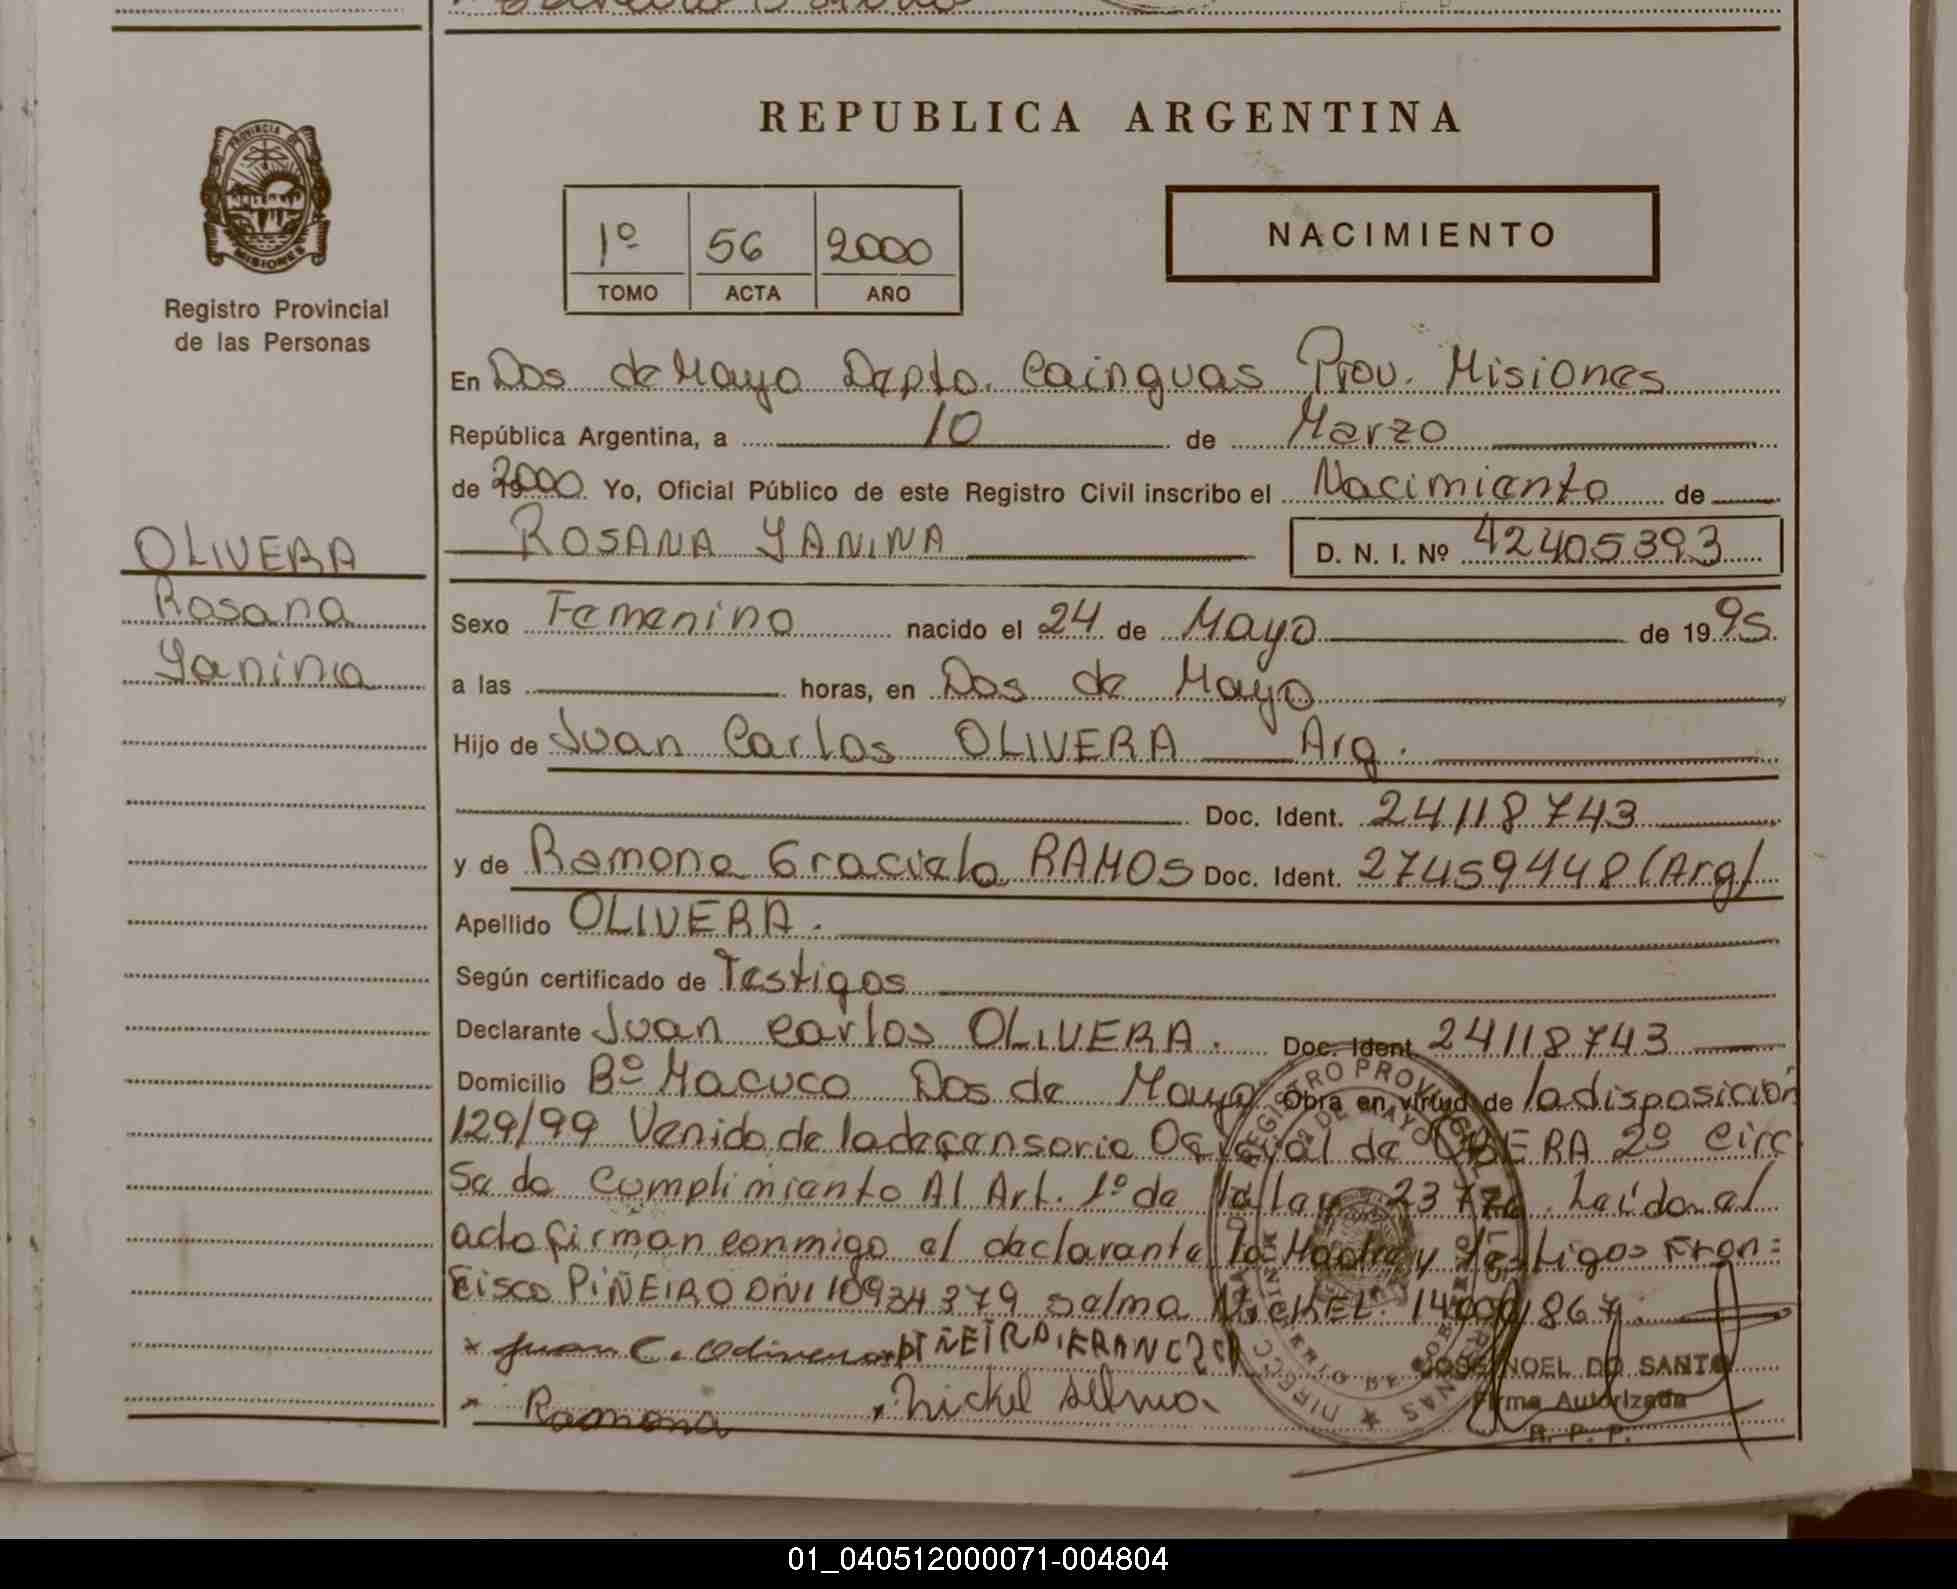 REPUBLICA ARGENTINA
PROVINCIA DE
MISIONES
Registro Provincial
de las Personas
1º 56 2000
TOMO ACTA AÑO
NACIMIENTO
En Dos de Mayo Depto. Cainguas Prov. Misiones
República Argentina, a 10 de Marzo
de 2000 Yo, Oficial Público de este Registro Civil inscribo el Nacimiento de
ROSANA YANINA D. N. I. Nº 42405393
OLIVERA
Rosana
Yanina
Sexo Femenino nacido el 24 de Mayo de 1995.
a las horas, en Dos de Mayo
Hijo de Juan Carlos OLIVERA Arg.
Doc. Ident. 24118743
y de Ramona Graciela RAMOS Doc. Ident. 27459448 (Arg)
Apellido OLIVERA.
Según certificado de Testigos
Declarante Juan Carlos OLIVERA. Doc. Ident. 24118743
Domicilio Bº Macuco Dos de Mayo Obra en virtud de la disposición
129/99 Venido de la defensoria Oficial de OBERA 2º Circ
Se da Complimiento Al Art. 1º de la lay Leído al
acto firman conmigo el declarante la Madre y testigos Fran=
cisco PIÑEIRO DNI 10934379 selma NickEL
* Juan C. Olivera PIÑEIRO, FRANCISCO
* Ramona * Nickel Selma
JOSE NOEL DO SANTO
Firma Autorizada
R. P. P.
01_040512000071-004804